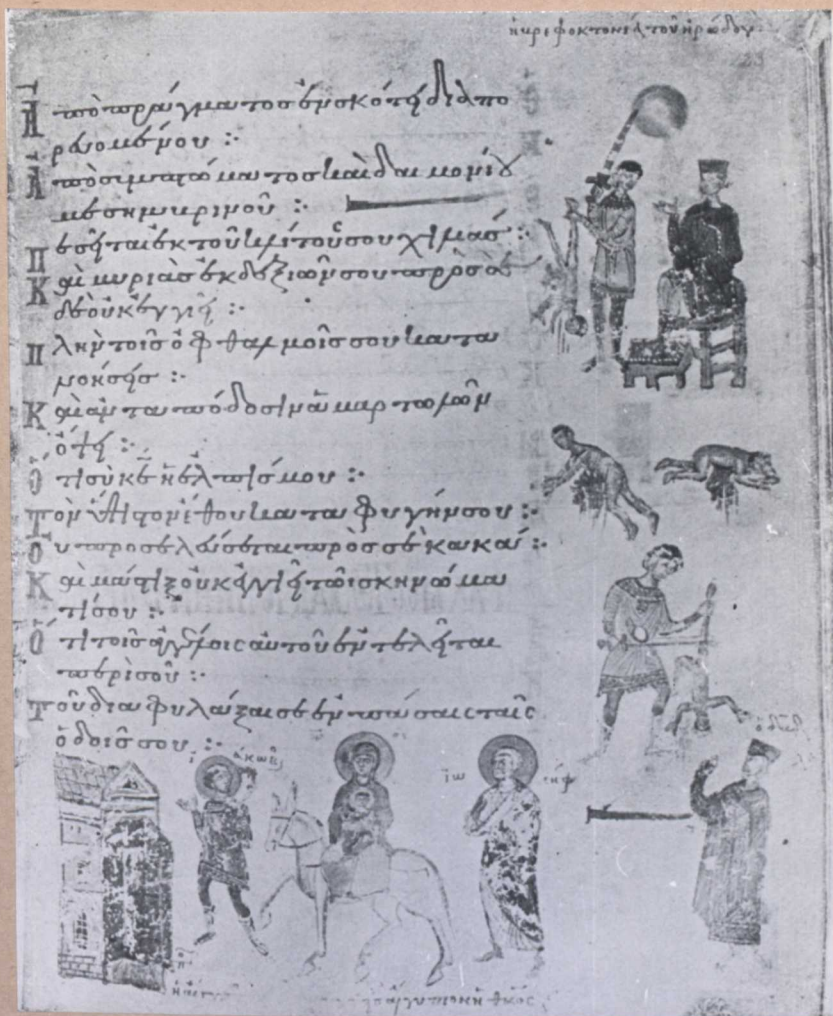 ἡ βρεφοκτονία τοῦ ἡρώδου
Ἀπὸ πράγματος ἐν σκότει διαπο
ρευομένου :·
Ἀπὸ συμπτώματος καὶ δαιμονίου
μεσημβρινοῦ :·
Πεσεῖται ἐκ τοῦ κλίτους σου χιλιάς :·
Καὶ μυριὰς ἐκ δεξιῶν σου πρὸς σὲ
δὲ οὐκ ἐγγιεῖ :·
Πλὴν τοῖς ὀφθαλμοῖς σου κατα
νοήσεις :·
Καὶ ἀνταπόδοσιν ἁμαρτωλῶν
ὄψει :·
Ὅτι σὺ κε ἡ ἐλπίς μου :·
Τὸν ὕψιστον ἔθου καταφυγήν σου :·
Οὐ προσελεύσεται πρὸς σὲ κακά :·
Καὶ μάστιξ οὐκ ἐγγιεῖ τῶι σκηνώμα
τί σου :·
Ὅτι τοῖς ἀγγέλοις αὐτοῦ ἐντελεῖται
περὶ σοῦ :·
Τοῦ διαφυλάξαι σε ἐν πάσαις ταῖς
ὁδοῖς σου :·
ἰάκωβ
ἰωσήφ